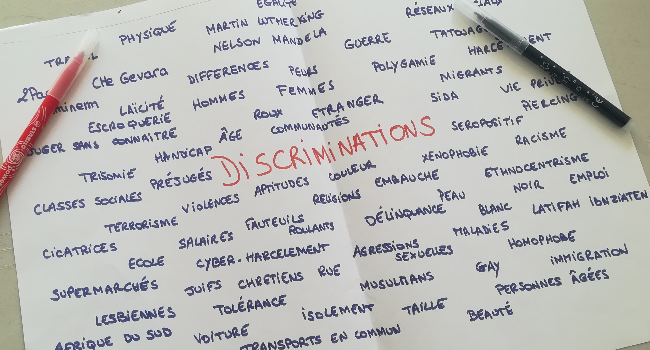 EGALITÉ
PHYSIQUE MARTIN LUTHER KING RÉSEAUX
NELSON MANDELA GUERRE TATOUAGE
2Pac CHE GEVARA DIFFERENCES PEURS POLYGAMIE
LAÏCITÉ HOMMES FEMMES MIGRANTS VIE PRIVÉE
ESCROQUERIE ROUX ETRANGER SIDA PIERCING
JUGER SANS CONNAITRE ÂGE COMMUNAUTÉS SEROPOSITIF
HANDICAP DISCRIMINATIONS RACISME
TRISOMIE PRÉJUGÉS COULEUR XENOPHOBIE
CLASSES SOCIALES APTITUDES EMBAUCHE ETHNOCENTRISME
VIOLENCES RELIGIONS PEAU NOIR EMPLOI
TERRORISME FAUTEUILS ROULANTS DÉLINQUANCE BLANC LATIFAH IBNZIATEN
CICATRICES SALAIRES AGRESSIONS SEXUELLES MALADIES
ECOLE CYBER-HARCELEMENT HOMOPHOBE
SUPERMARCHÉS JUIFS CHRÉTIENS RUE MUSULMANS GAY IMMIGRATION
LESBIENNES TOLÉRANCE ISOLEMENT TAILLE PERSONNES ÂGÉES
AFRIQUE DU SUD VOITURE BEAUTÉ
TRANSPORTS EN COMMUN